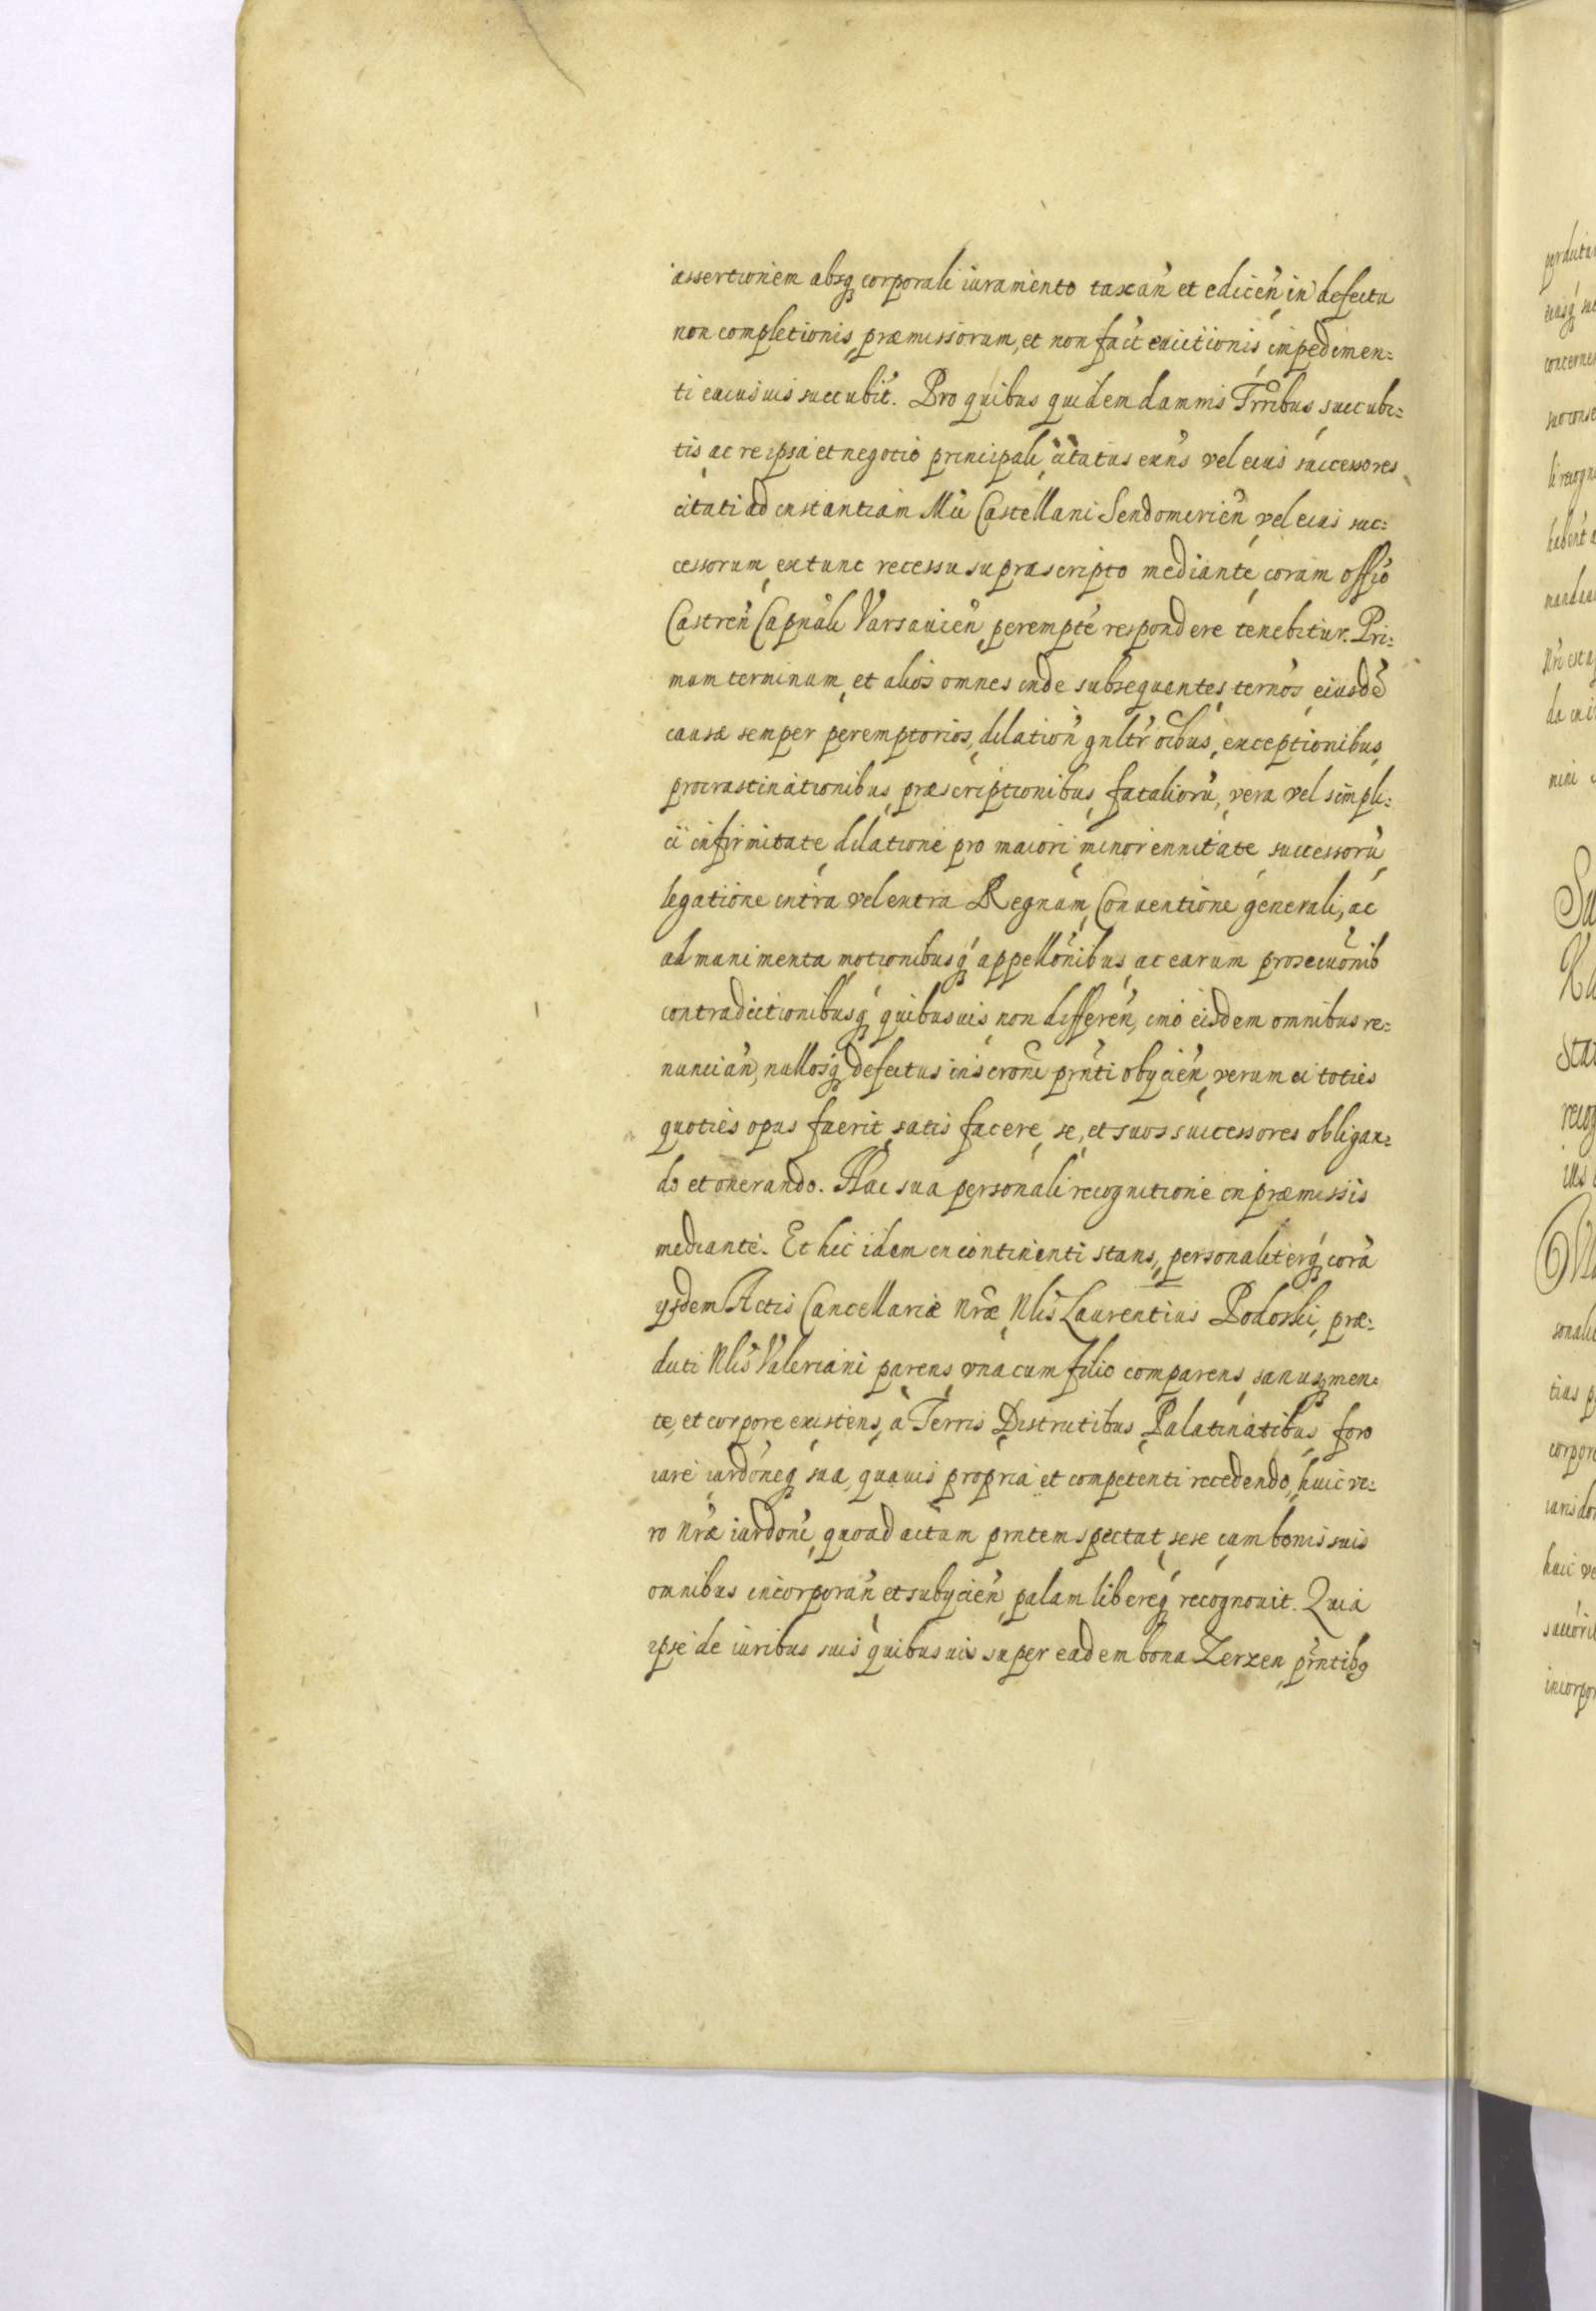 assertionem absq corporali iuramento taxan̄ et edicen̄ in defectu
non completionis, præmissorum, et non fact̄ euictionis impedimen=
ti cuiusuis succubit̄. Pro quibus quidem damnis Trribus, succubi=
tis, ac re ipsa et negotio principali, citatus vel eius successores
citati ad instantiam Mci Castellani Sendomirien̄, vel eius suc=
cessorum, extunc recessu suprascripto mediante, coram offio
Castren̄ Capnali Varsauien̄, perempte respondere tenebitur. Pri=
mum terminum, et alios omnes inde subsequentes, ternos, eiusdē
causæ semper peremptorios, dilation̄ gnltr oibus, exceptionibus,
procrastinationibus, præscriptionibus, fataliorū, vera vel simpli=
ci infirmitate, dilatione pro maiori, minorennitate, successorū,
legatione intra vel extra Regnum, Conuentione generali, ac
ad munimenta, motionibusq appellonibus, ac earum prosecuōnib
contradictionibusq quibusuis, non differen̄, imo eisdem omnibus re=
nuncian̄, nullosq defectus inscrōni prnti obijcien̄, verum ei toties
quoties opus fuerit, satis facere, se, et suos successores obligan=
do et onerando. Hac sua personali recognitione in præmissis
mediante. Et hic idem incontinenti stans, personaliterq corā
ijsdem Actis Cancellariæ Nræ Nlis Laurentius Podoski, præ=
dicti Nlis Valeriani parens, vna cum filio comparens, sanusq men=
te, et corpore existens, à Terris Districtibus Palatinatibus, foro
iure iurdoneq sua, quauis propria et competenti recedendo, huic ve=
ro Nræ iurdoni, quoad actum prntem spectat, sese cum bonis suis
omnibus incorporan̄ et subijcien̄, palam libereq recognouit. Quia
ipse de iuribus suis quibusuis super eadem bona Zerzen, prntibq